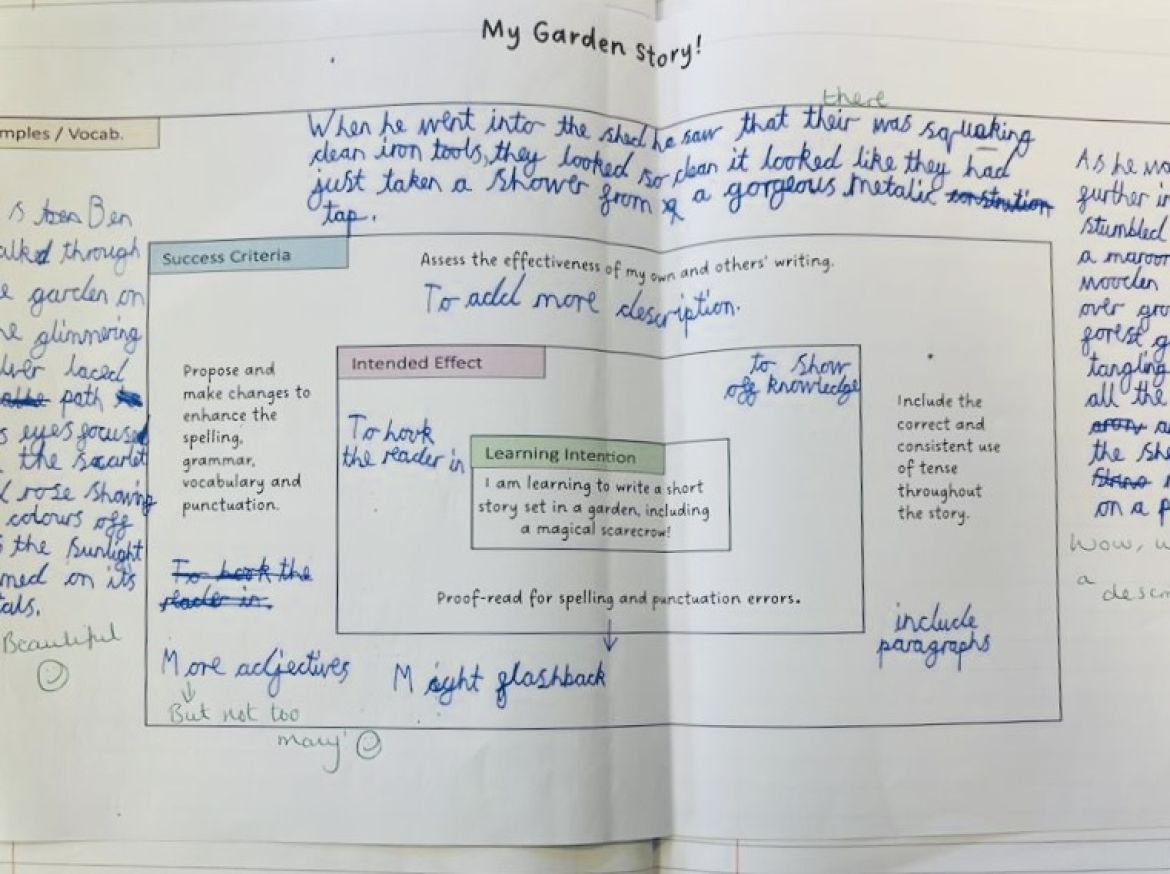 My Garden Story!
mples / Vocab.
there
When he went into the shed he saw that their was squaking
clean iron tools, they looked so clean it looked like they had
just taken a shower from a gorgeous metalic constrution
tap.
Ben
alked through
garden on
glimmering
laced
path
eyes focused
the scarlet
rose showing
colours off
the sunlight
on its
tals.
Beautiful
Success Criteria
Assess the effectiveness of my own and others' writing.
To add more description.
Propose and
make changes to
enhance the
spelling,
grammar,
vocabulary and
punctuation.
To hook the
reader in.
More adjectives
But not too
many
Might flashback
Intended Effect
to show
off knowledge
To hook
the reader in
Learning Intention
I am learning to write a short
story set in a garden, including
a magical scarecrow!
Proof-read for spelling and punctuation errors.
Include the
correct and
consistent use
of tense
throughout
the story.
include
paragraphs
As he
further
stumbled
a
wooden
over
forest
tangling
all the
the
on a
Wow,
a